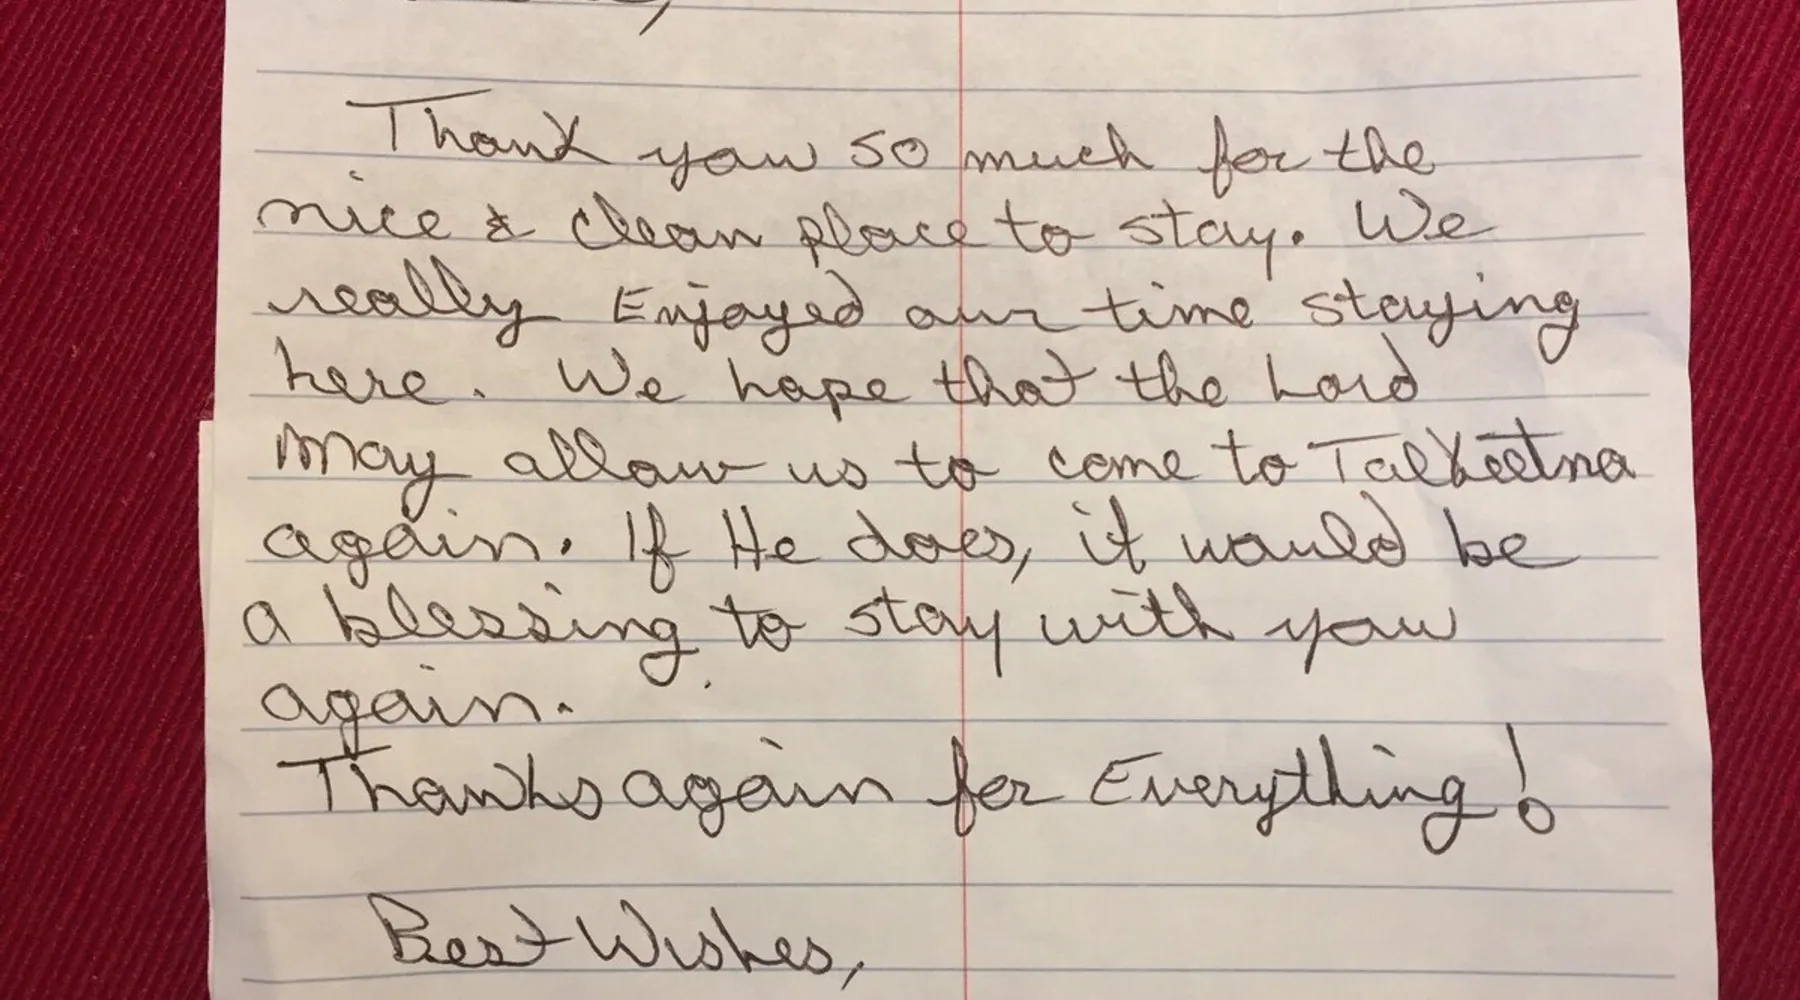 Thank you so much for the
nice & clean place to stay. We
really Enjoyed our time staying
here. We hope that the Lord
may allow us to come to Talkeetna
again. If He does, it would be
a blessing to stay with you
again.
Thanks again for Everything!
Best Wishes,